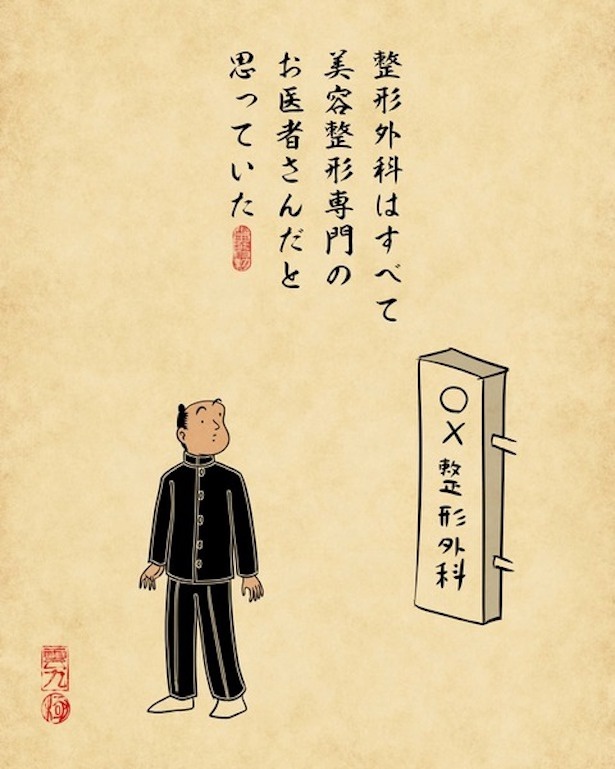 整形外科はすべて
美容整形専門の
お医者さんだと
思っていた
○×整形外科